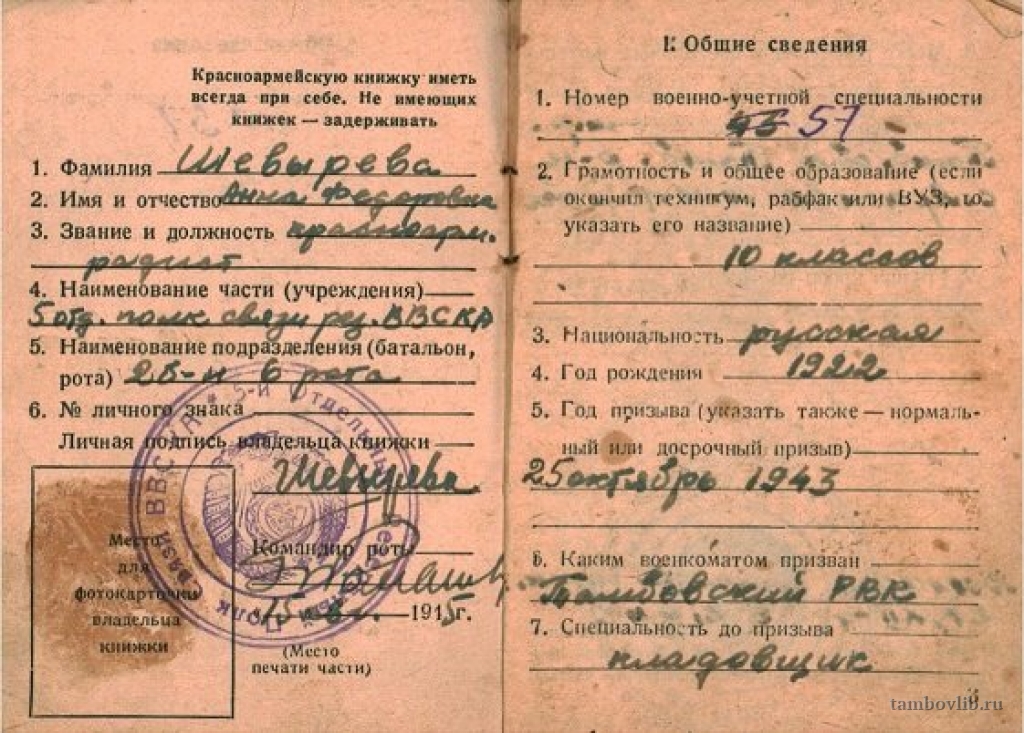 Красноармейскую книжку иметь
всегда при себе. Не имеющих
книжек — задерживать
1. Фамилия Шевырева
2. Имя и отчество Анна Федоровна
3. Звание и должность красноарм.
радист
4. Наименование части (учреждения)
5 отд. полк связи рез. ВВСКА
5. Наименование подразделения (батальон,
рота) 2 б-н 6 рота
6. № личного знака
Личная подпись владельца книжки
Шевырева
Место
для
фотокарточки
владельца
книжки
Командир роты
15 1945г.
(Место
печати части)
I. Общие сведения
1. Номер военно-учетной специальности
57
2. Грамотность и общее образование (если
окончил техникум, рабфак или ВУЗ, то
указать его название)
10 классов
3. Национальность русская
4. Год рождения 1922
5. Год призыва (указать также — нормаль-
ный или досрочный призыв)
25 октябрь 1943
6. Каким военкоматом призван
Тамбовский РВК
7. Специальность до призыва
кладовщик
tambovlib.ru